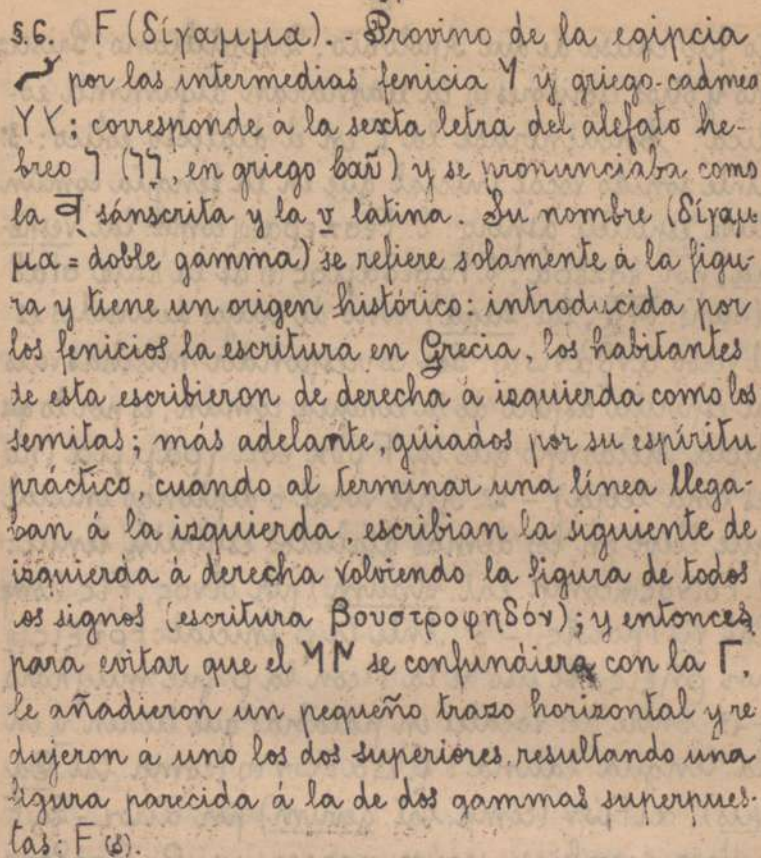 §.6. F (δίγαμμα). - Provino de la egipcia
por las intermedias fenicia Y y griego-cadmea
Y Y; corresponde á la sexta letra del alefato he-
breo ו (וו, en griego βαῦ) y se pronunciaba como
la व् sánscrita y la v latina. Su nombre (δίγαμ-
μα = doble gamma) se refiere solamente á la figu-
ra y tiene un origen histórico: introducida por
los fenicios la escritura en Grecia, los habitantes
de esta escribieron de derecha á izquierda como los
semitas; más adelante, guiados por su espíritu
práctico, cuando al terminar una línea llega-
ban á la izquierda, escribian la siguiente de
izquierda á derecha volviendo la figura de todos
os signos (escritura βουστροφηδόν); y entonces,
para evitar que el se confundiera con la Γ,
le añadieron un pequeño trazo horizontal y re
dujeron á uno los dos superiores, resultando una
figura parecida á la de dos gammas superpues-
tas: F